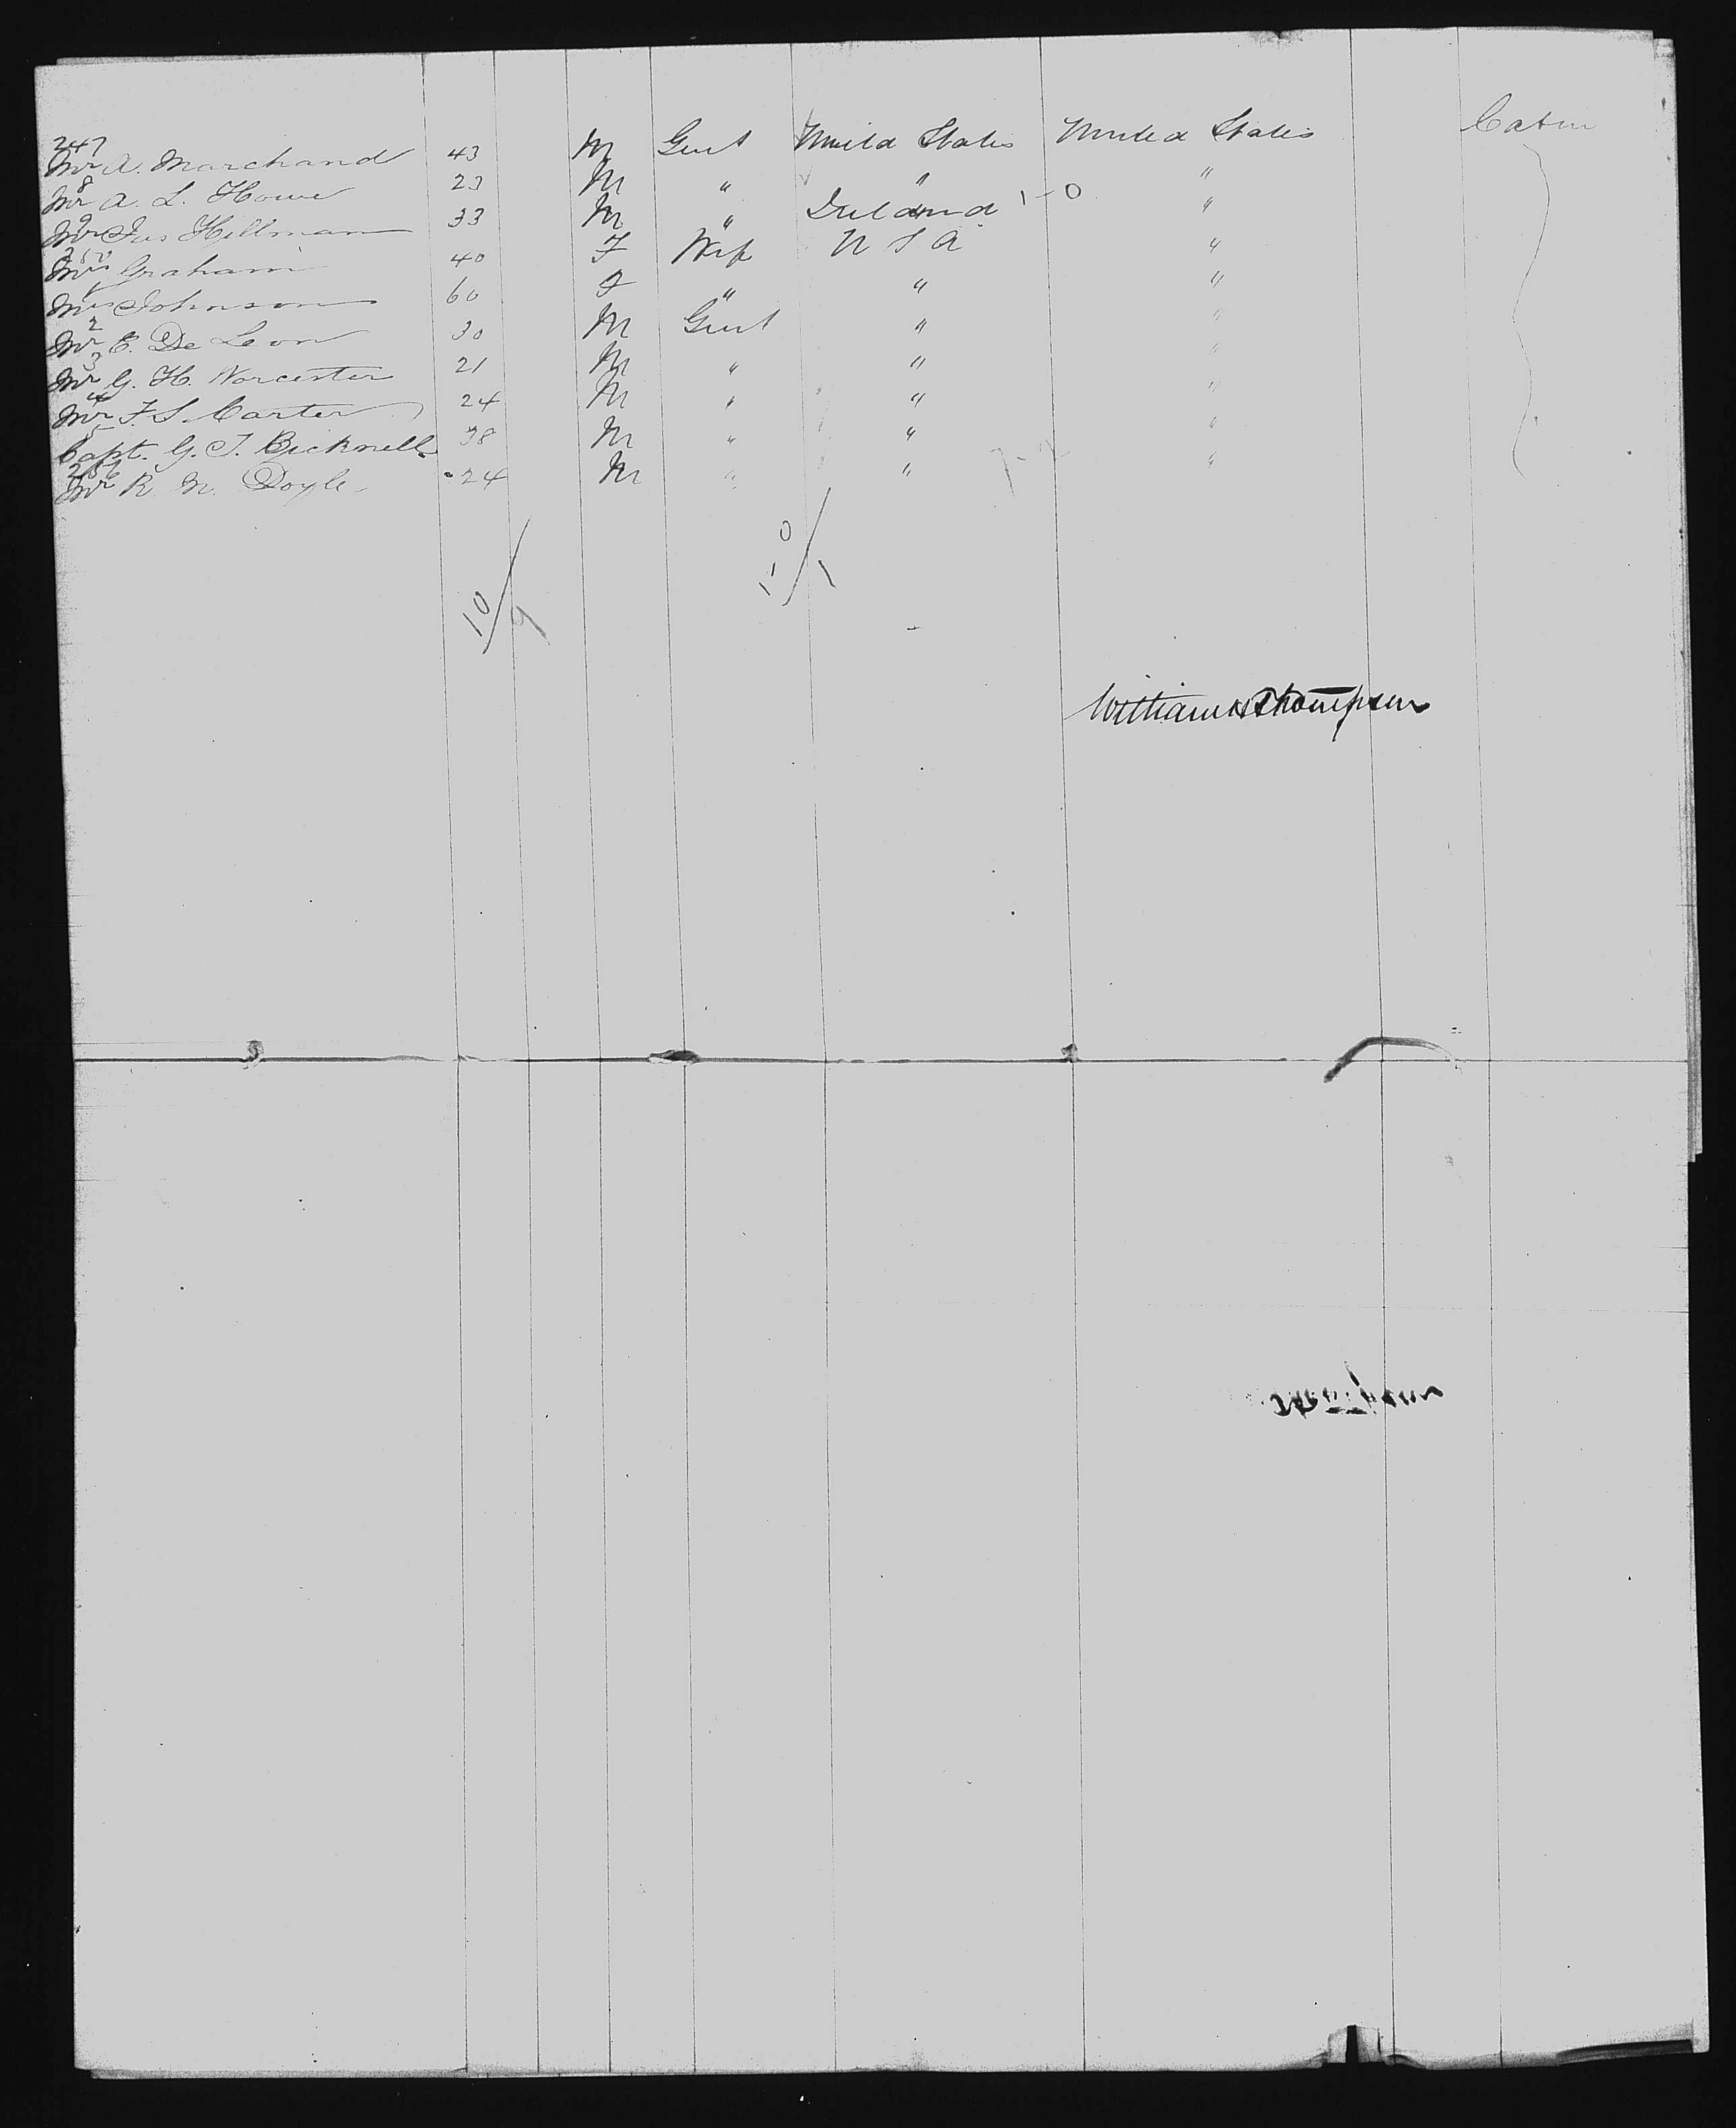 247 Mr A. Marchand 43 M Gent United States United States Cabin
8 Mr A. L. Howe 23 M " " "
9 Mr Jas Hillman 33 M " Ireland 1-0 "
250 Mrs Graham 40 F Wife U S A "
1 Mrs Johnson 60 F " " "
2 Mr E. De Leon 30 M Gent " "
3 Mr G. H. Worcester 21 M " " "
4 Mr F. S. Carter 24 M " " "
5 Capt. G. T. Bicknell 38 M " " "
256 Mr R. M. Doyle 24 M " " "
10/9 1-0/1
William Thompson